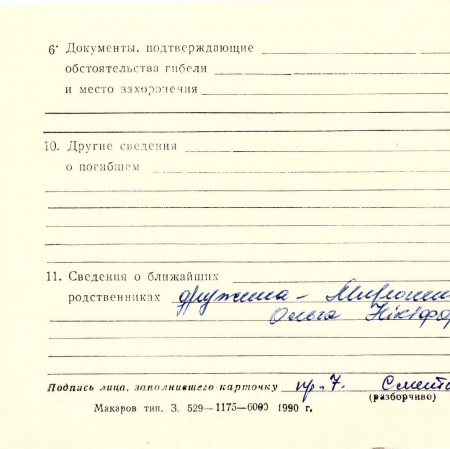 6. Документы, подтверждающие
обстоятельства гибели
и место захоронения
10. Другие сведения
о погибшем
11. Сведения о ближайших
родственниках дружина –
Ольга
Подпись лица, заполнившего карточку пр. 7.
(разборчиво)
Макаров тип. З. 529—1175—6000 1990 г.